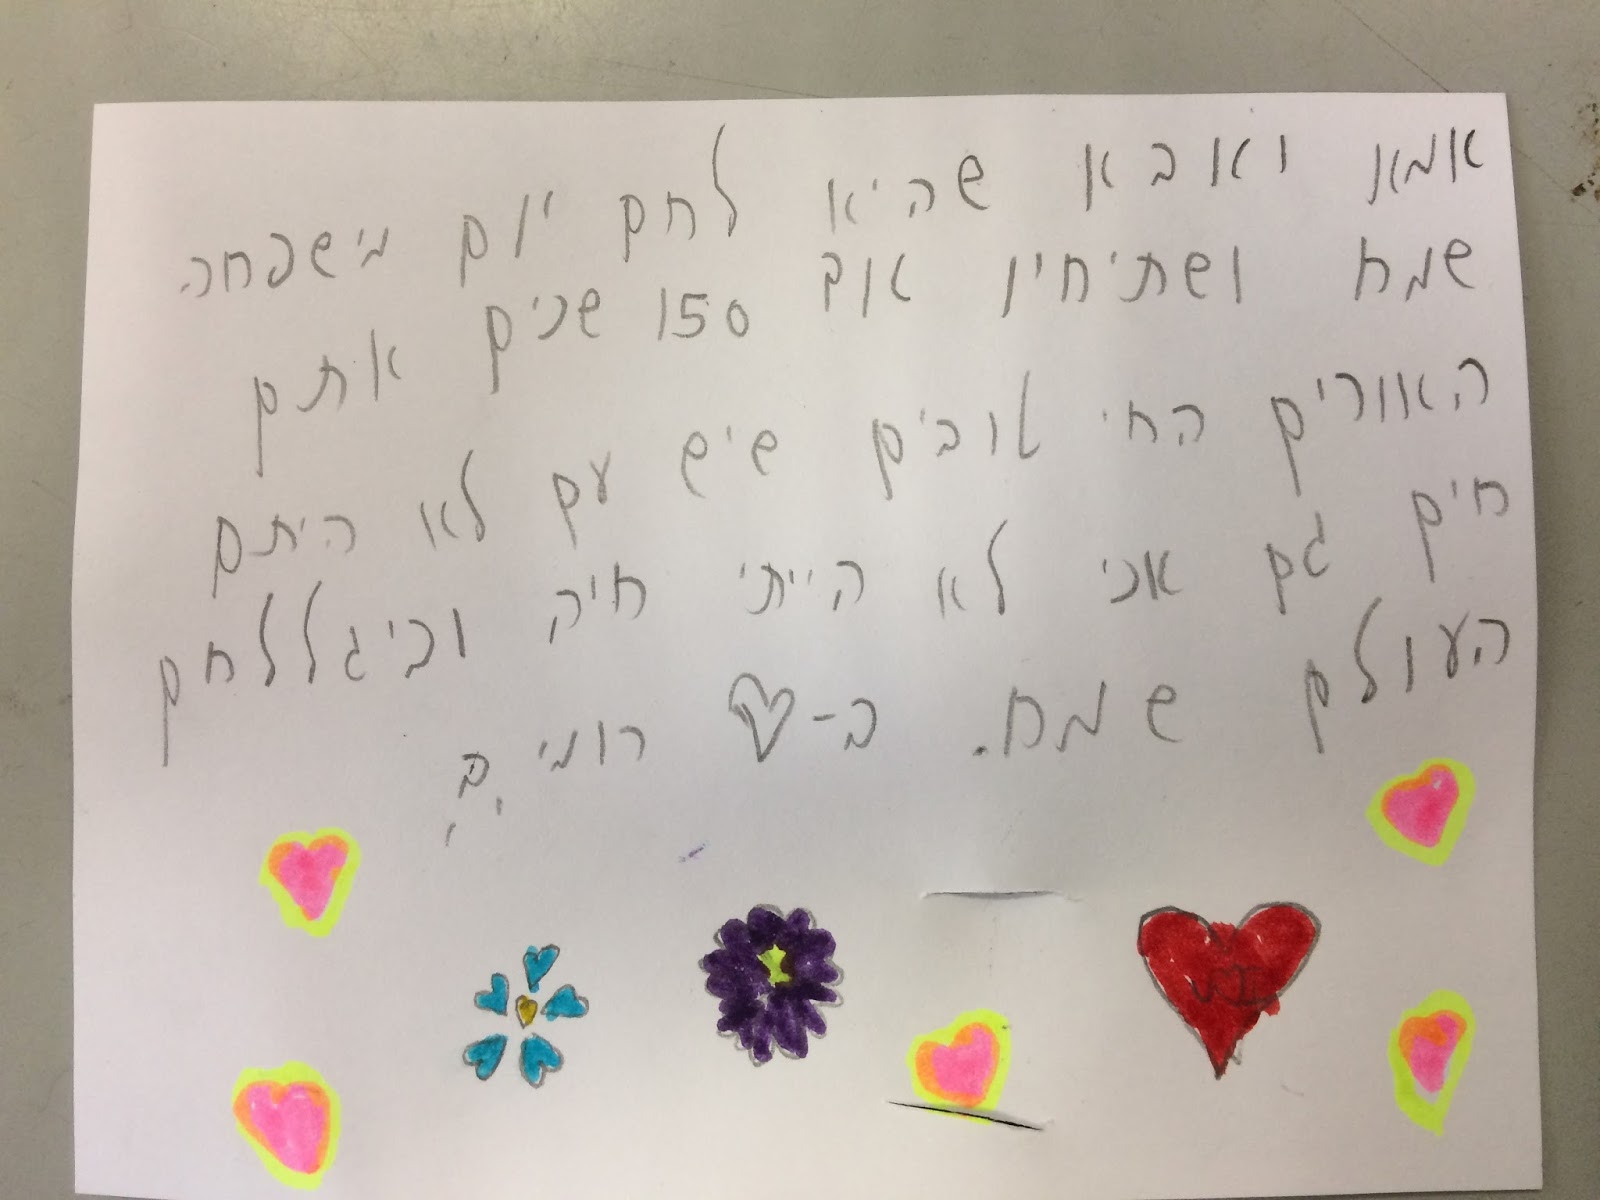 אמא ואבא שהיא לחם יום מישפחה
שמח ושתיחיו אוב 150 שנים אתם
האורים החי טובים שיש עם לא היתם
חים גם אני לא הייתי חיה וביגללחם
העולם שמח. ב-♡ רומי ב,